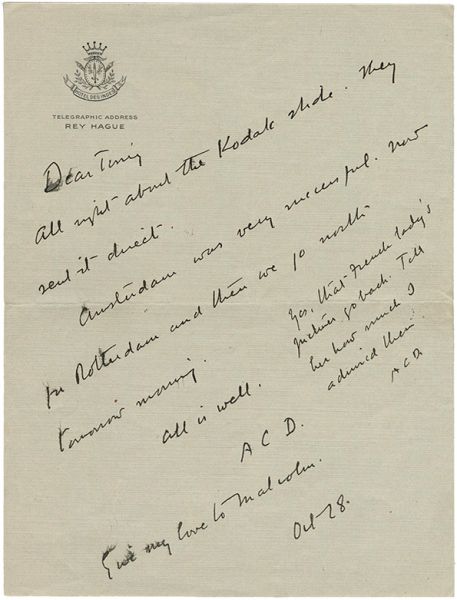 HOTEL DES INDES
TELEGRAPHIC ADDRESS
REY HAGUE
Dear
All right about the Kodak slide. They
sent it direct.
Amsterdam was very successful. Now
for Rotterdam and then we go north
tomorrow morning.
All is well.
A C D.
Give my love to Malcolm.
Oct 28.
Yes, that French lady's
pictures go back. Tell
her how much I
admired them.
A C D